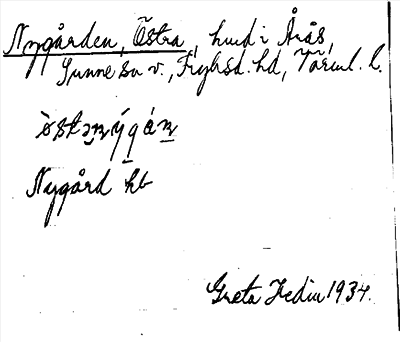 Nygården, Östra, hmd i Årås,
Gunne sn v., Fryksd. hd, Värml. l.
Nygård hb
Greta Hedin 1934.